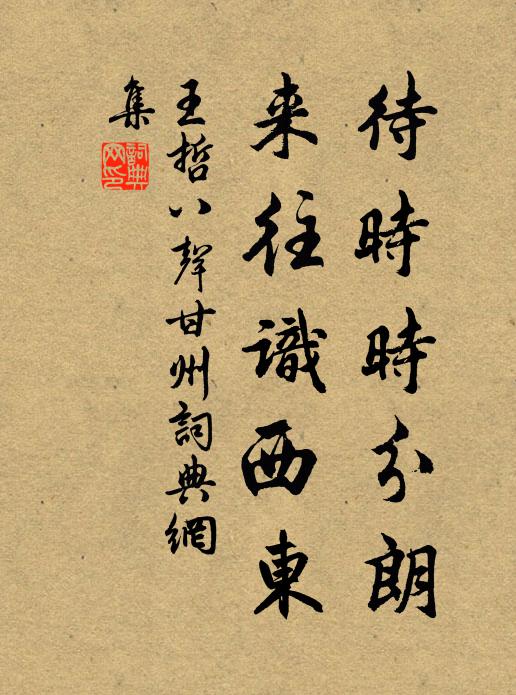 待時時分朗
来往識西東
王哲八聲甘州詞典網
集
詞典網印